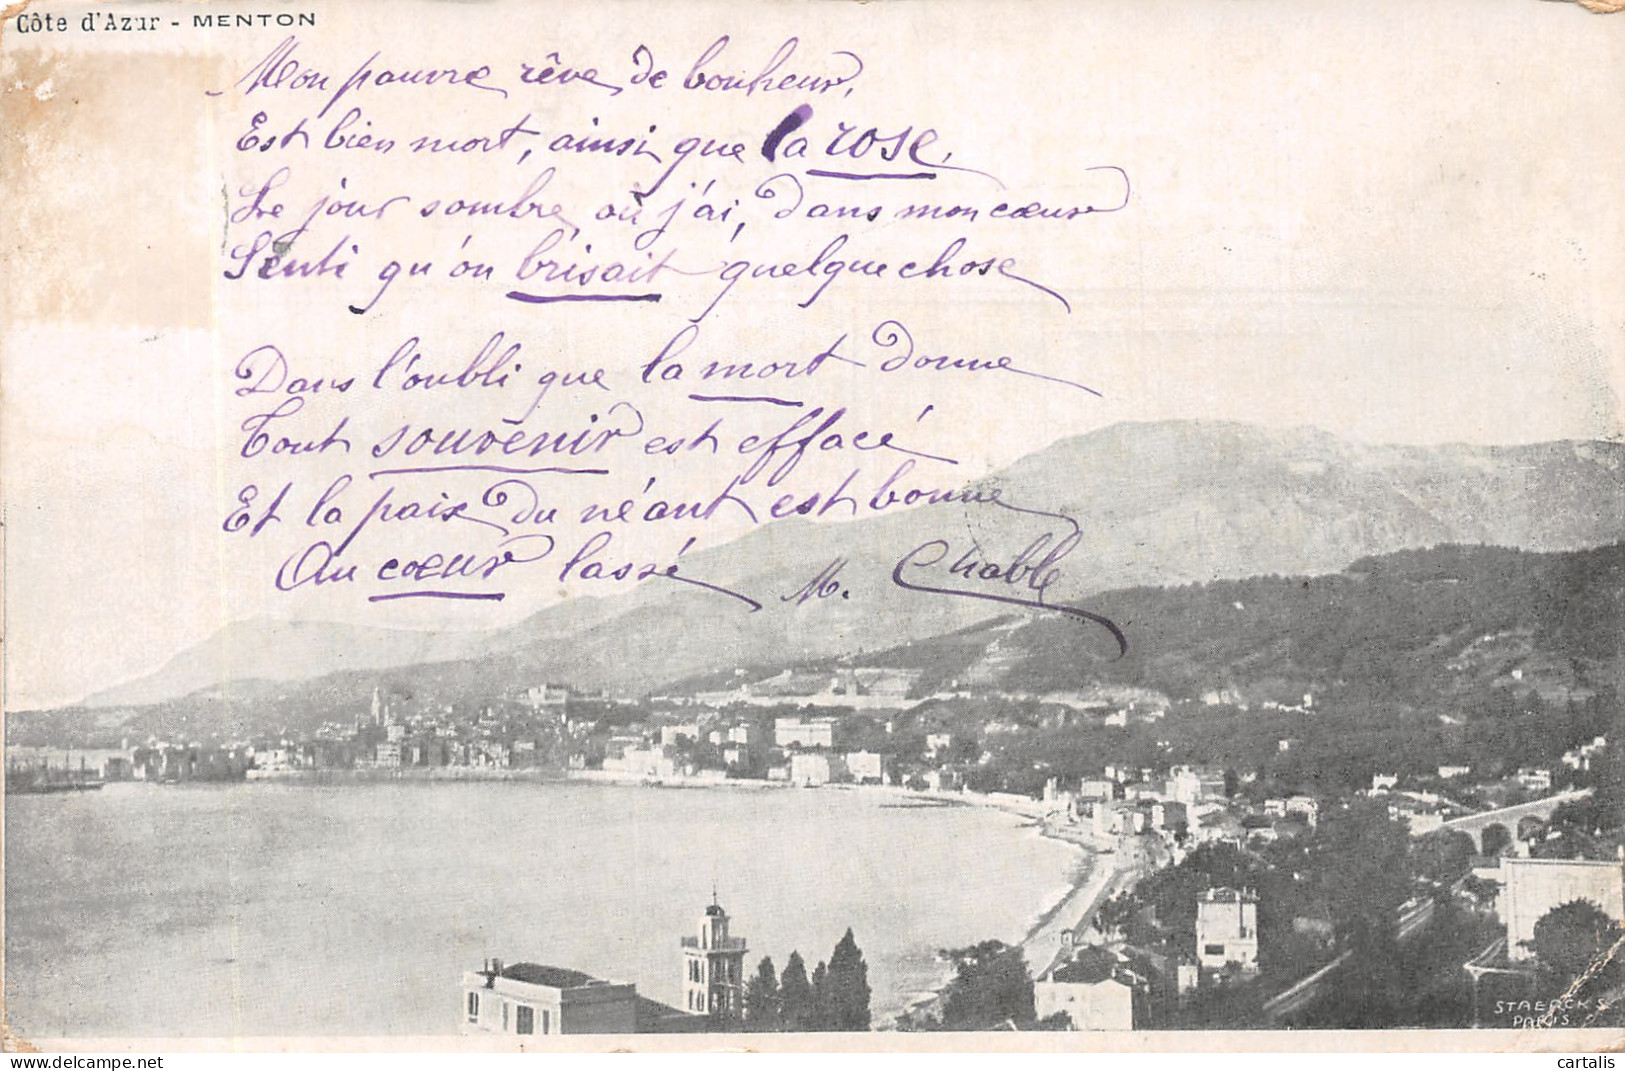 Côte d'Azur - MENTON
Mon pauvre rêve de bonheur,
Est bien mort, ainsi que la rose,
Le jour sombre où j'ai, dans mon cœur
Senti qu'on brisait quelque chose
Dans l'oubli que la mort donne
Tout souvenir est effacé
Et la paix du néant est bonne
Au cœur lassé
M. Chable
STAERCK S
PARIS
cartalis